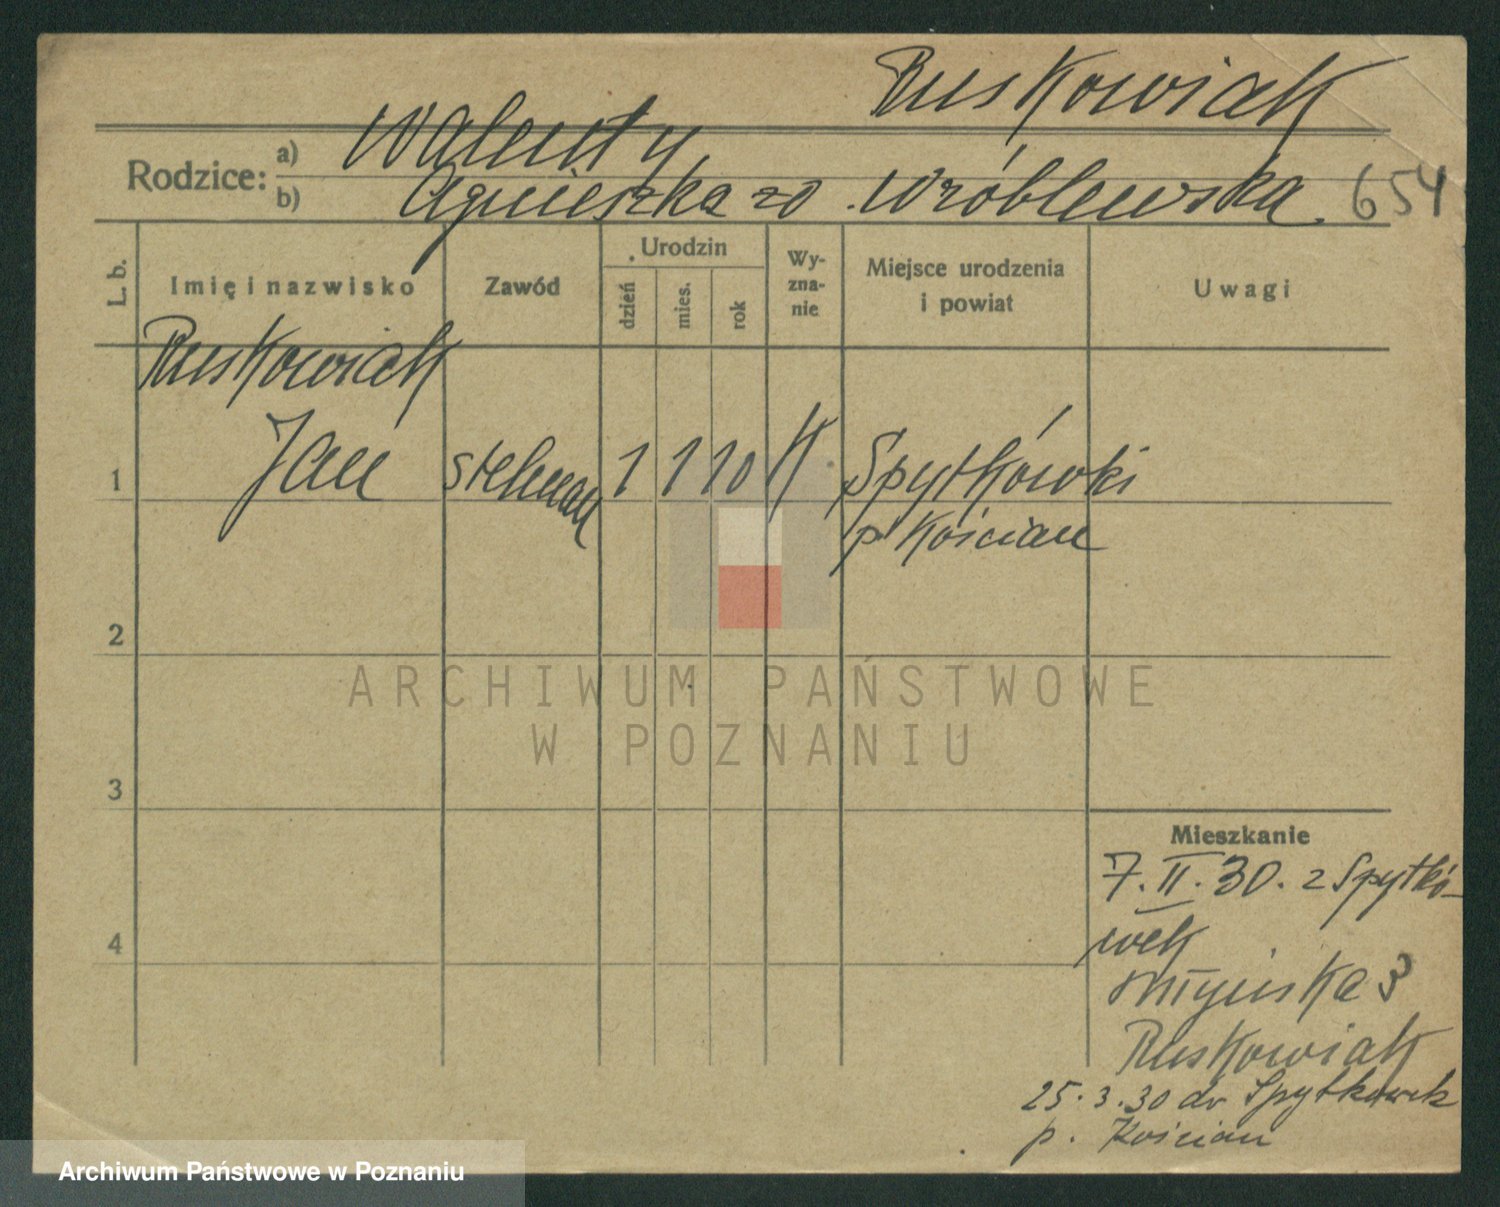 Ruskowiak
Rodzice: a) Walenty
b) Agnieszka zd Wróblewska. 654
L. b. Imię i nazwisko Zawód Urodzin dzień mies. rok Wy-zna-nie Miejsce urodzenia i powiat Uwagi
Ruskowiak
1 Jan stelmach 1 1 10 K Spytkówki
p Kościan
2
ARCHIWUM PAŃSTWOWE
W POZNANIU
3
Mieszkanie
7.II.30. z Spytkó-
wek
4
Młyńska 3
Ruskowiak
25.3.30 do Spytkówek
p. Kościan
Archiwum Państwowe w Poznaniu